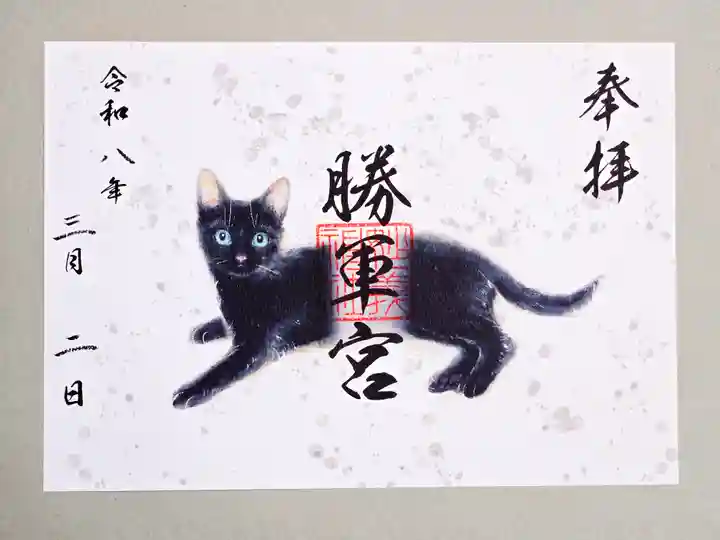 奉拝
勝軍宮
令和八年
三月二日